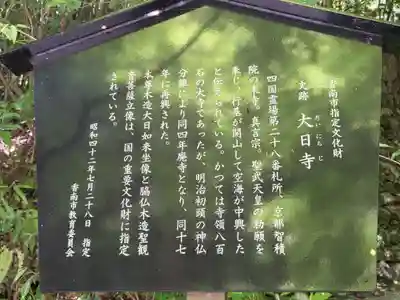 香南市指定文化財
史跡 大日寺
だいにちじ
四国霊場第二十八番札所、京都智積
院の末寺。真言宗。聖武天皇の勅願を
奉じ、行基が開山して空海が中興した
と伝えられている。かつては寺領八百
石の大寺であったが、明治初頭の神仏
分離により同四年廃寺となり、同十七
年に再興された。
本尊木造大日如来坐像と脇仏木造聖観
音菩薩立像は、国の重要文化財に指定
されている。
昭和四十二年七月二十八日 指定
香南市教育委員会